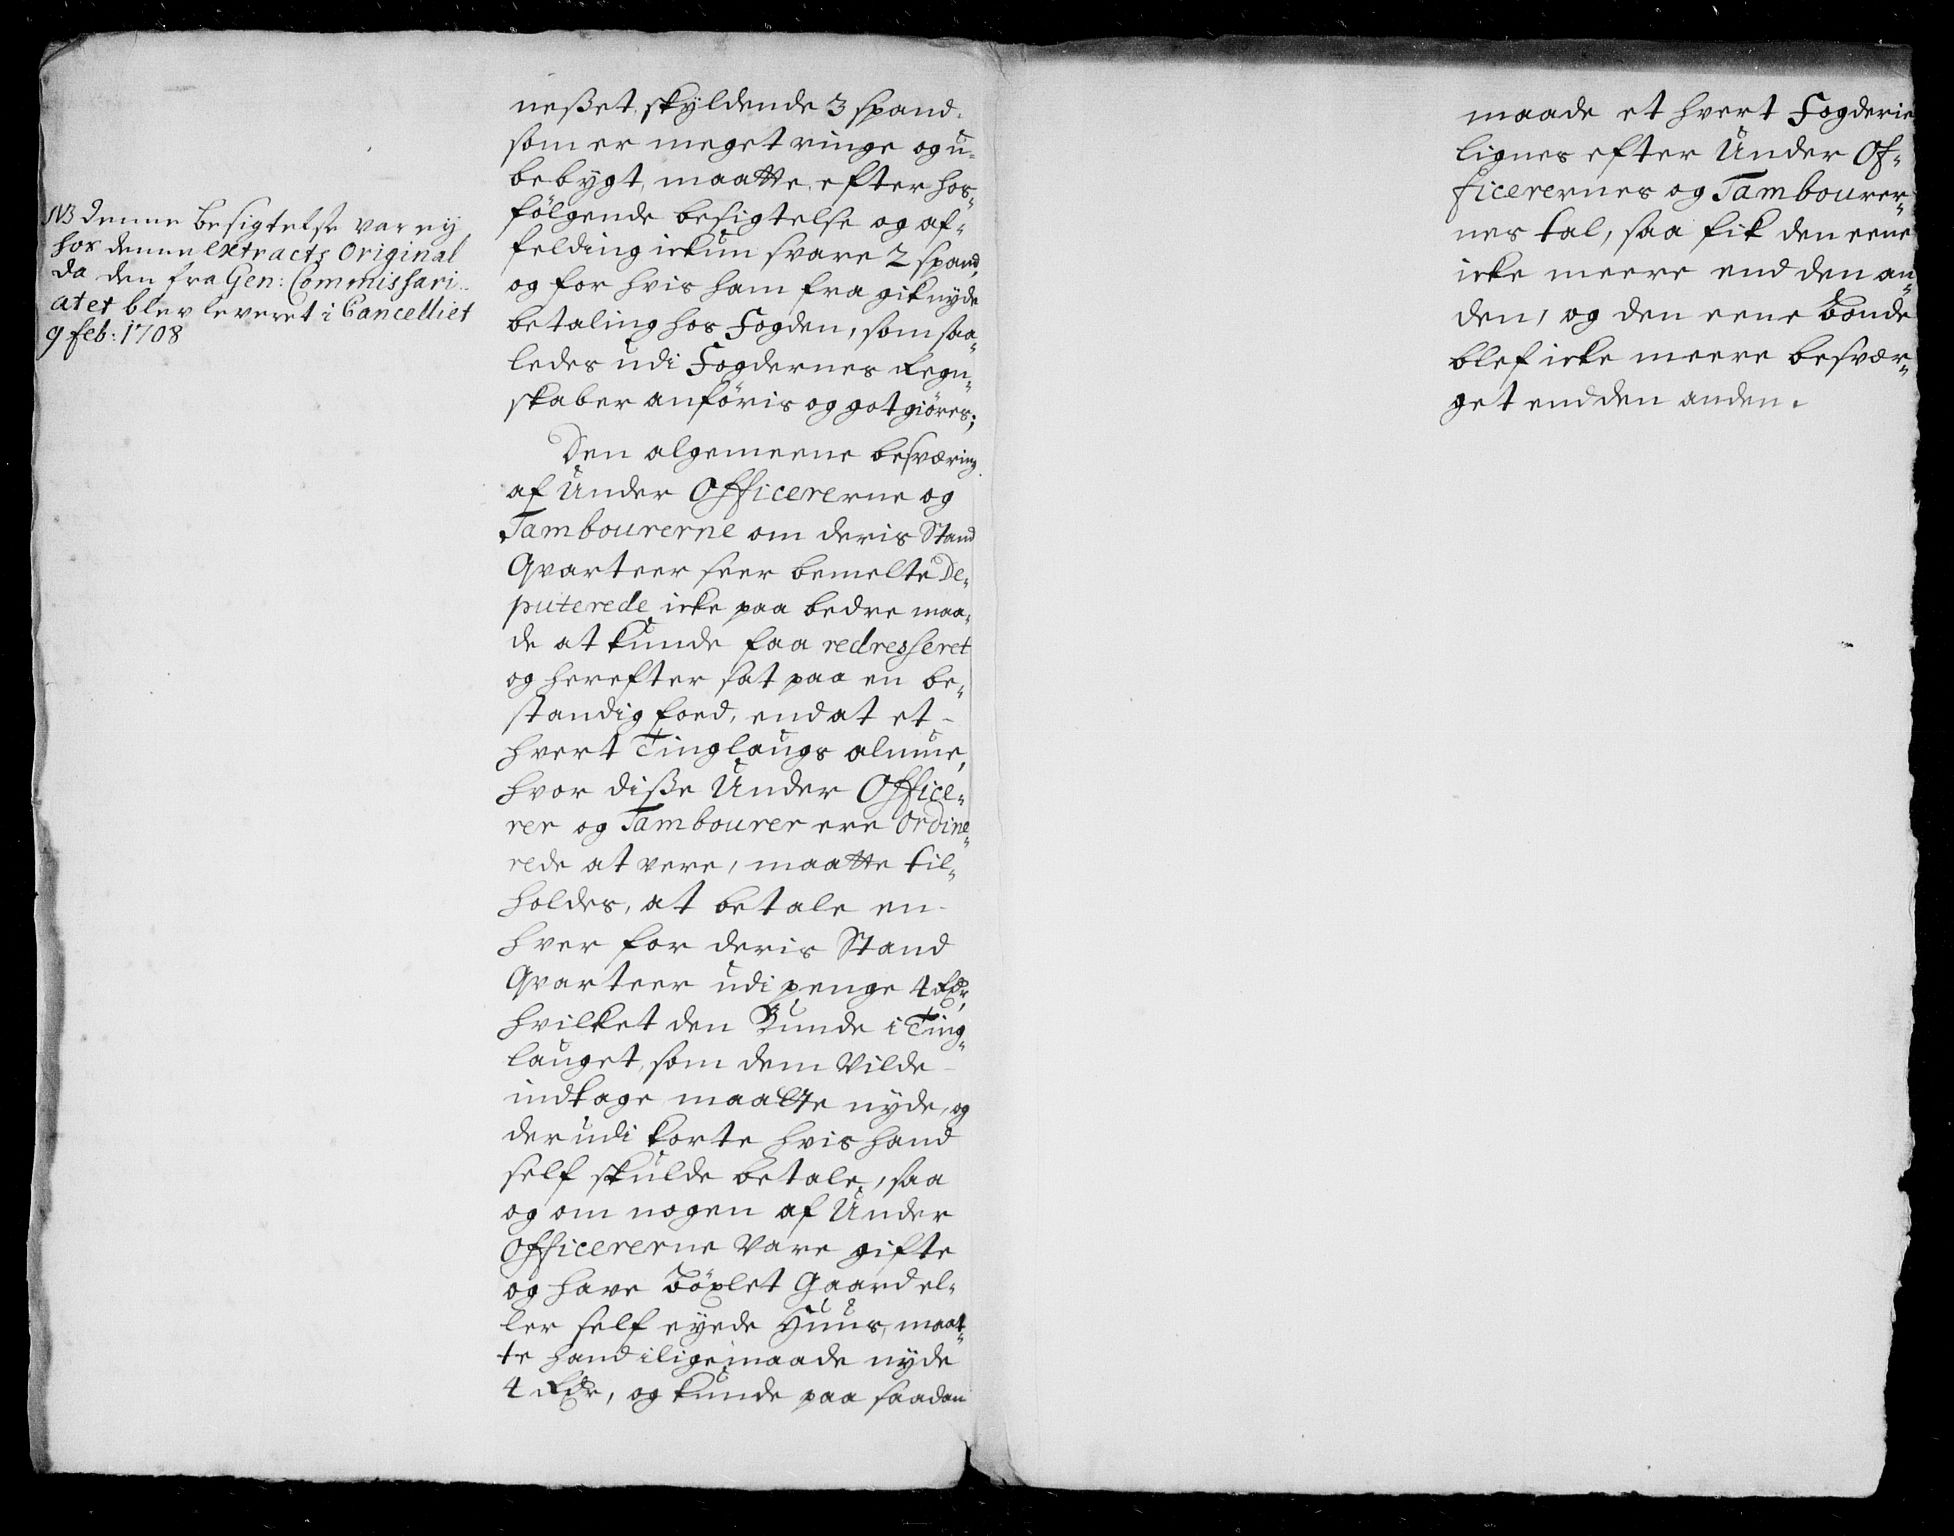 NB denne besigtelse var ey
hos denne extracts Original
da den fra Gen: Commissari-
atet blev leveret i Cancelliet
9 feb: 1708
neßet, skyldende 3 spand,
som er meget ringe og u-
bebygt, maatte, efter hos-
følgende besigtelse og af-
felding ickun svare 2 spand,
og for hvis ham fra gik nyde
betaling hos Fogden, som saa-
ledes udi Fogdernes Regn-
skaber anføris og gotgiøres;
Den algemeene besværing
af Under Officererne og
Tambourerne om deris Stand
Qvarteer seer bemelte De-
puterede icke paa bedre maa-
de at kunde faa redresseret
og herefter sat paa en be-
standig foed, end at et-
hvert Tinglaugs almue,
hvor diße Under Office-
rer og Tambourer ere Ordine-
rede at vere, maatte til-
holdes, at betale en-
hver for deris Stand
Qvarteer udi penge 4 Rdr,
hvilket den Bunde i Ting-
lauget, som dem vilde
indtage maatte nyde, og
der udi korte hvis hand
self skulde betale, saa
og om nogen af Under
Officererne vare gifte
og have Böxlet Gaard el-
ler self eyede Huus, maat-
te hand i lige maade nyde
4 Rdr, og kunde paa saadan
maade et hvert Fogderie
lignes efter Under Of-
ficerernes og Tambourer-
nes tal, saa fik den eene
icke meere end den an-
den, og den eene Bonde
blef icke meere besvær-
get end den anden.